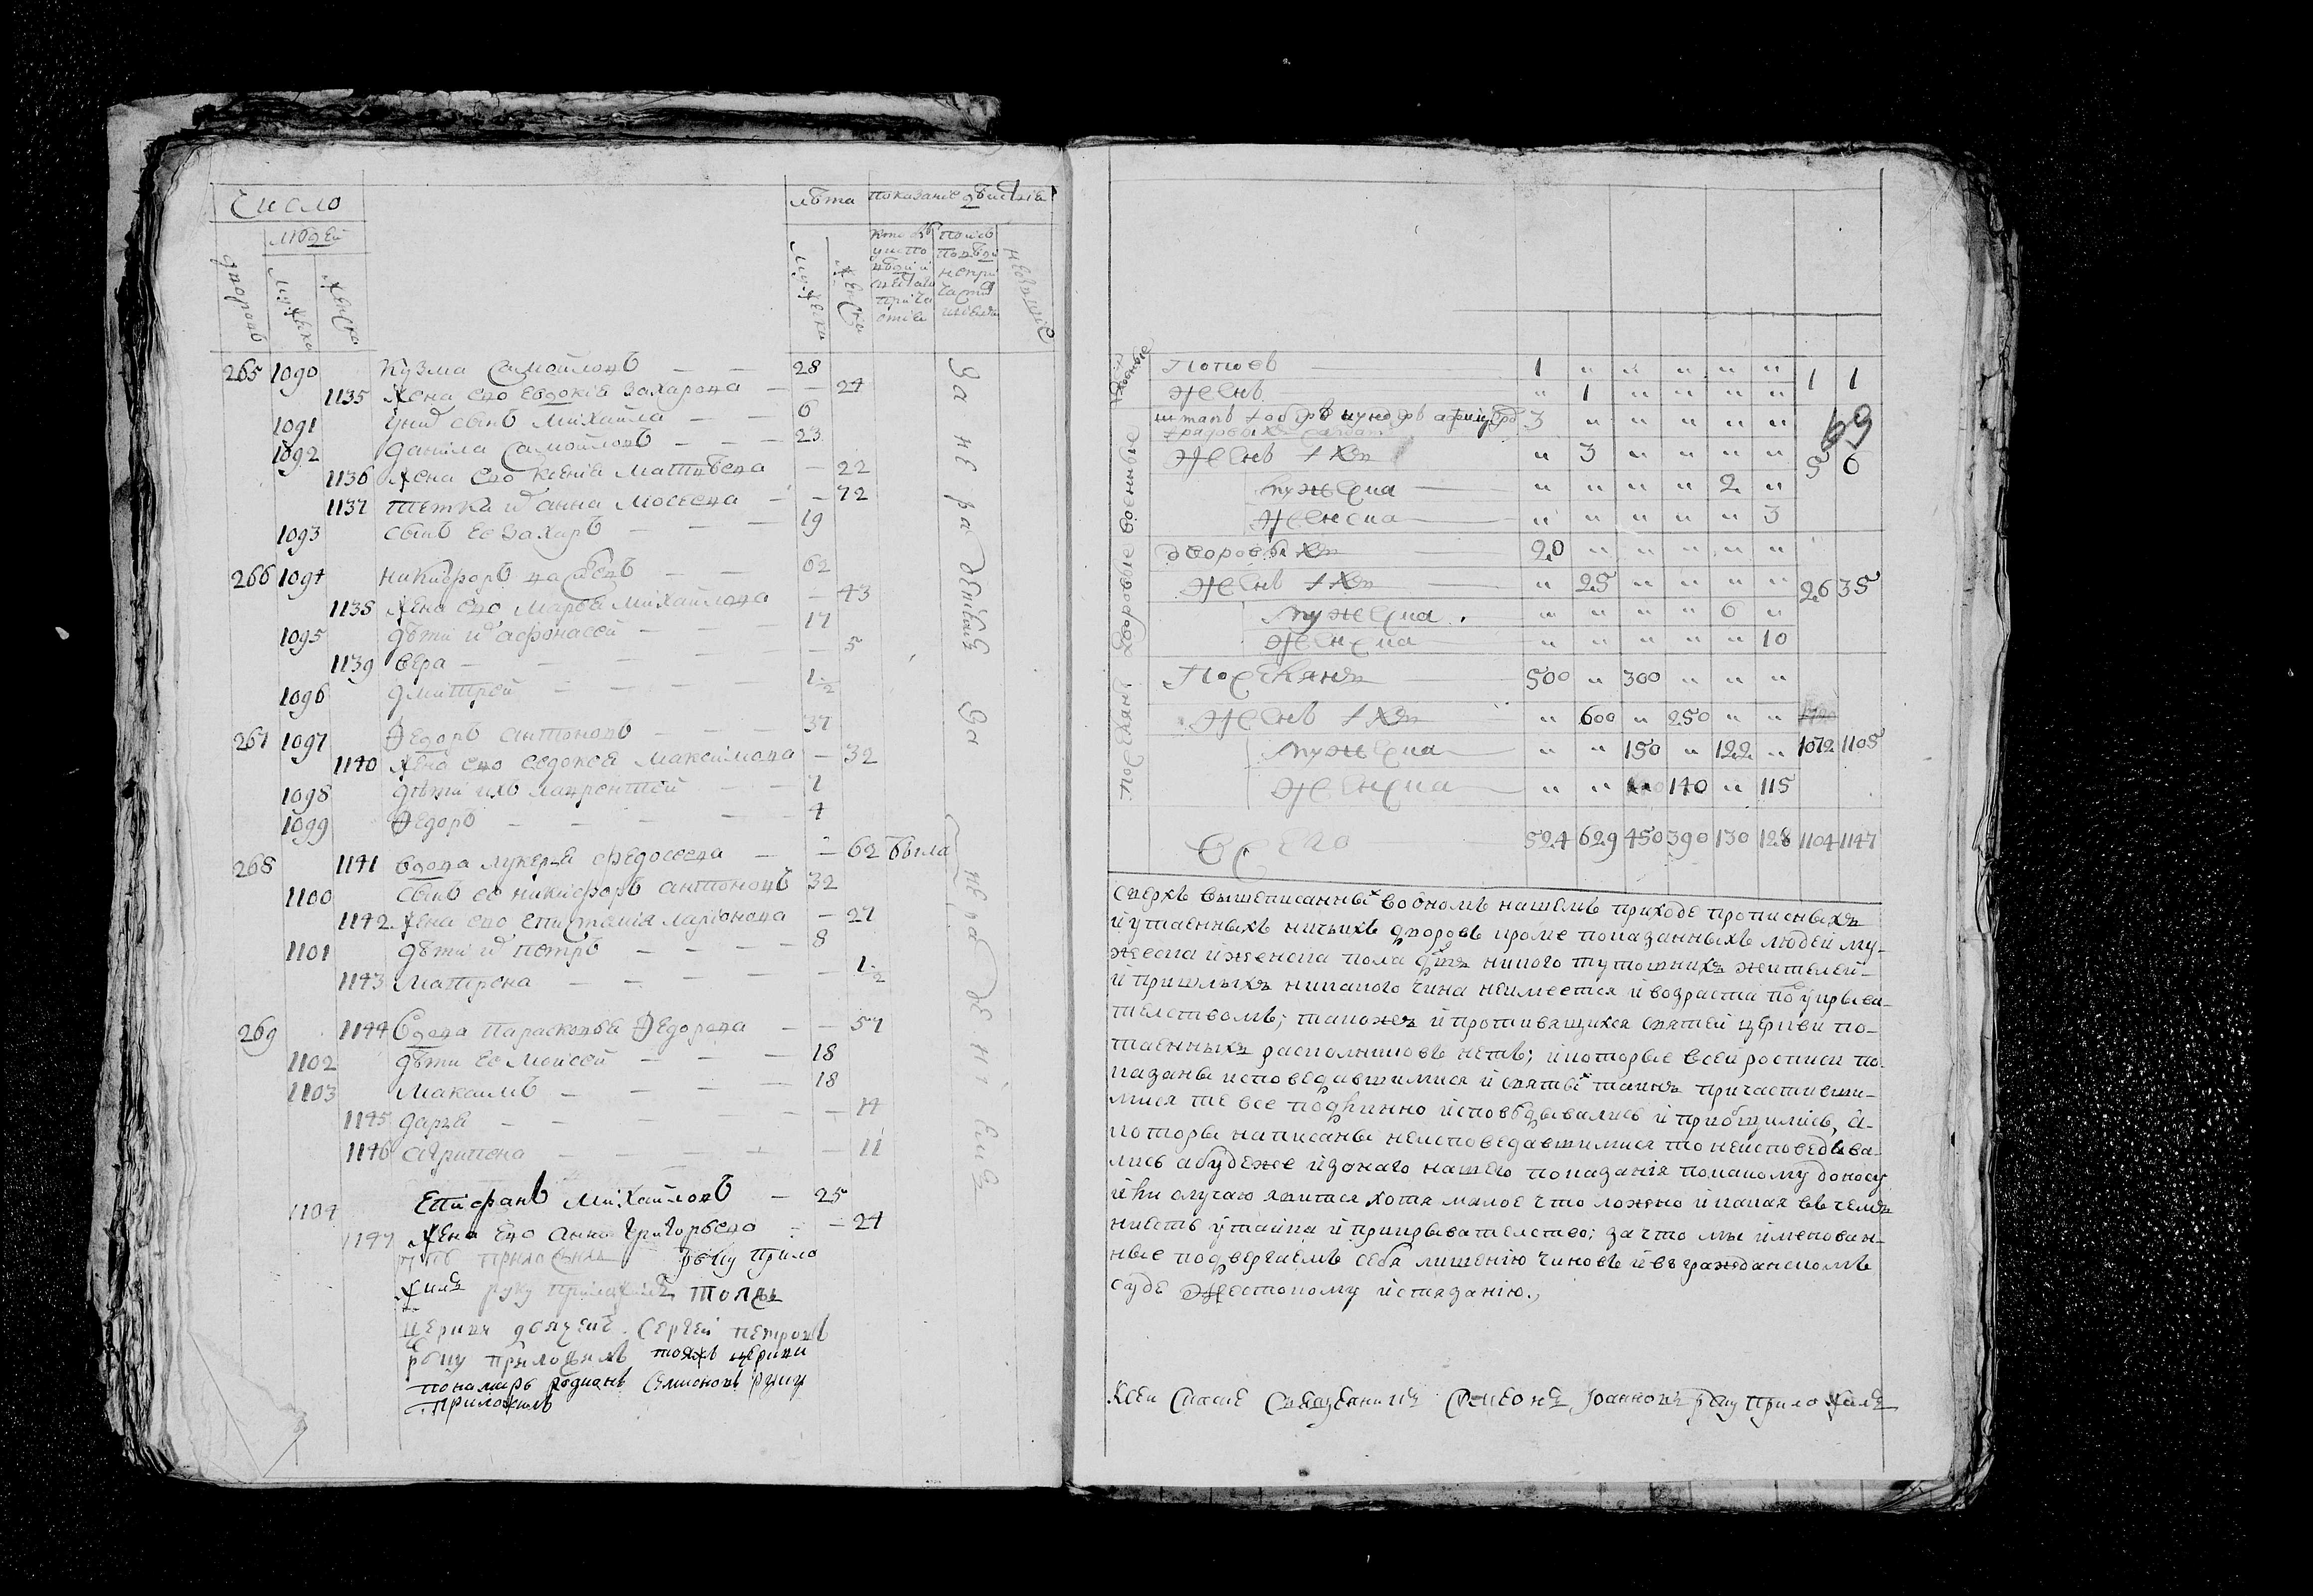 Число
людей
дворовъ
мужеска
женска
лѣта
показанiе дѣйствiя
мужеска
женска
за нераденiемъ
за нераденiемъ
265 1090 Кузма Самойловъ — — 28
1135 Жена ево Евдокiя Захарова — — 27
1091 сынъ Михайла — — 6
1092 Данила Самойловъ — — — 23
1136 Жена ево Ксенiя Матвѣева — 22
1137 тетка их Анна Мосеева — — 72
1093 сынъ ее Захаръ — — — 19
266 1094 Никифоръ — — 62
1138 Жена ево Марѳа Михайлова — 43
1095 дѣти их Афонасей — — — 17
1139 Вера — — — — — 5
1096 Дмитрей — — — — 1/2
267 1097 Ѳедоръ Антоновъ — — 37
1140 Жена ево Евдокея Максимова — 32
1098 дѣти ихъ Лаврентiй — — 7
1099 Ѳедоръ — — — — — 4
268 1141 вдова Лукерья Федосеева — — 62 была
1100 сынъ ее Никифоръ Антоновъ 32
1142 Жена ево Епистимiя Ларiонова — 27
1101 дѣти их Петръ — — — 8
1143 Матрена — — — — — 1/2
269 1144 Вдова Парасковья Ѳедорова — — 57
1102 дѣти ее Мойсей — — — 18
1103 Максимъ — — — — 18
1145 Дарья — — — — — 14
1146 Агрипена — — — — — 11
1104 Епифанъ Михайловъ — 25
1147 Жена ево Анна Григорьева — 24
руку прило
жилъ руку приложилъ тояжъ
церкви дьячекъ Сергей Петровъ
руку приложилъ тояжъ церкви
пономарь Родионъ Семионовъ руку
приложилъ
69
Духовные
Поповъ — 1 " " " " "
Женъ — " 1 " " " " 1 1
Военные
штапъ + оберъ ундеръ афицеръ 3 " " " " "
+ рядовыхъ салдат
Женъ + ихъ " 3 " " " " 5 6
мужеска — " " " " 2 "
женска — " " " " " 3
Дворовые
дворовыхъ 20 " " " " "
Женъ + ихъ — " 25 " " " " 26 35
мужеска — " " " " 6 "
женска — " " " " " 10
Поселяне
Поселянъ — 500 " 300 " " "
Женъ + ихъ — " 600 " 250 " "
мужеска — " " 150 " 122 " 1072 1105
женска — " " " 140 " 115
Всего 524 629 450 390 130 128 1104 1147
сверхъ вышеписанных во ономъ нашемъ приходе прописныхъ
и утаенныхъ ничьихъ дворовъ кроме показанныхъ людей му-
жеска и женска пола душъ никого тутошнихъ жителей
и пришлыхъ никакого чина неимеется и возраста под укрыва-
телствомъ; такожъ и противящихся святей церкви по-
таенныхъ расколниковъ нетъ; и которые в сей росписи по-
казаны исповедавшимися и святых таинъ причастивши-
мися те все подлинно исповѣдывались и приобщились, а
которы написаны неисповедавшимися то неисповедыва-
лись а буде же из онаго нашего показанiя по какому доносу
или случаю явится хотя малое что ложно и какая въ чемъ
нибсть утайка и прикрывателство; за что мы именован-
ные подвергаемъ себя лишенiю чиновъ и въ гражданскомъ
суде жестокому истязанiю.,
К сей Сказке Священникъ Симеонъ Iоанновъ руку приложилъ